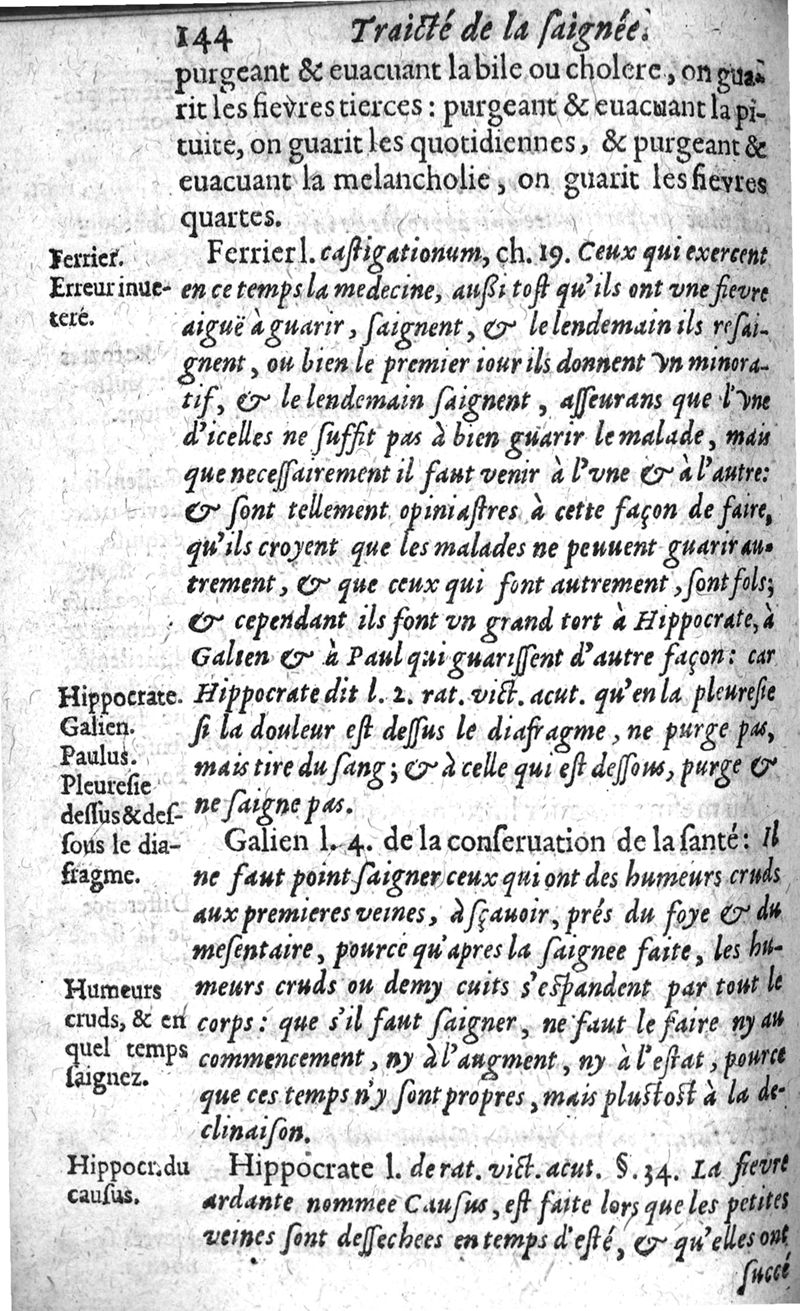 144 Traicté de la ſaignée.
purgeant & euacuant la bile ou cholere, on gua-
rit les fievres tierces : purgeant & euacuant la pi-
tuite, on guarit les quotidiennes, & purgeant &
euacuant la melancholie, on guarit les fievres
quartes.
Ferrier l. caſtigationum, ch. 19. Ceux qui exercent
en ce temps la medecine, außi toſt qu'ils ont vne fievre
aiguë à guarir, ſaignent, & le lendemain ils reſai-
gnent, ou bien le premier iour ils donnent vn minora-
tif, & le lendemain ſaignent, aſſeurans que l'vne
d'icelles ne ſuffit pas à bien guarir le malade, mais
que neceſſairement il faut venir à l'vne & à l'autre:
& ſont tellement opiniaſtres à cette façon de faire,
qu'ils croyent que les malades ne peuuent guarir au-
trement, & que ceux qui font autrement, ſont fols;
& cependant ils font vn grand tort à Hippocrate, à
Galien & à Paul qui guariſſent d'autre façon: car
Hippocrate dit l. 2. rat. vict. acut. qu'en la pleureſie
ſi la douleur eſt deſſus le diafragme, ne purge pas,
mais tire du ſang; & à celle qui eſt deſſous, purge &
ne ſaigne pas.
Galien l. 4. de la conſeruation de la ſanté: Il
ne faut point ſaigner ceux qui ont des humeurs cruds
aux premieres veines, à sçauoir, prés du foye & du
meſentaire, pource qu'apres la ſaignee faite, les hu-
meurs cruds ou demy cuits s'eſpandent par tout le
corps: que s'il faut ſaigner, ne faut le faire ny au
commencement, ny à l'augment, ny à l'eſtat, pource
que ces temps n'y ſont propres, mais pluſtoſt à la de-
clinaiſon.
Hippocrate l. de rat. vict. acut. §. 34. La fievre
ardante nommee Cauſus, eſt faite lors que les petites
veines ſont deſſechees en temps d'eſté, & qu'elles ont
ſuccé
Ferrier.
Erreur inue-
teré.
Hippocrate.
Galien.
Paulus.
Pleureſie
deſſus & deſ-
ſous le dia-
fragme.
Humeurs
cruds, & en
quel temps
ſaignez.
Hippocr. du
cauſus.